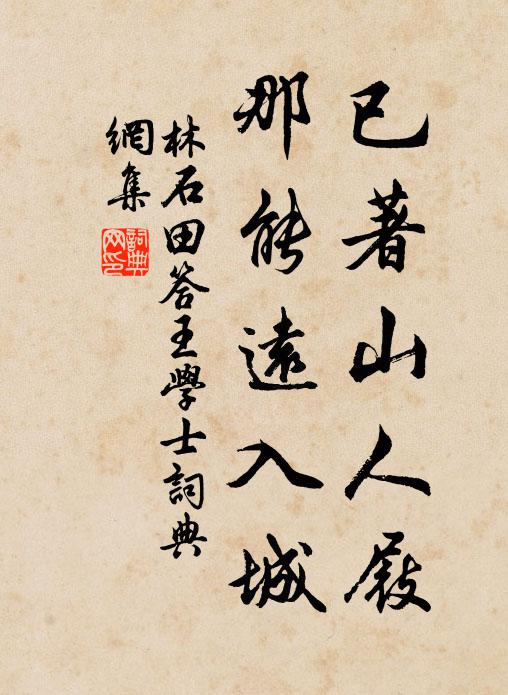 已著山人屐
那能遠入城
林石田答王學士詞典
網集
詞典
网印